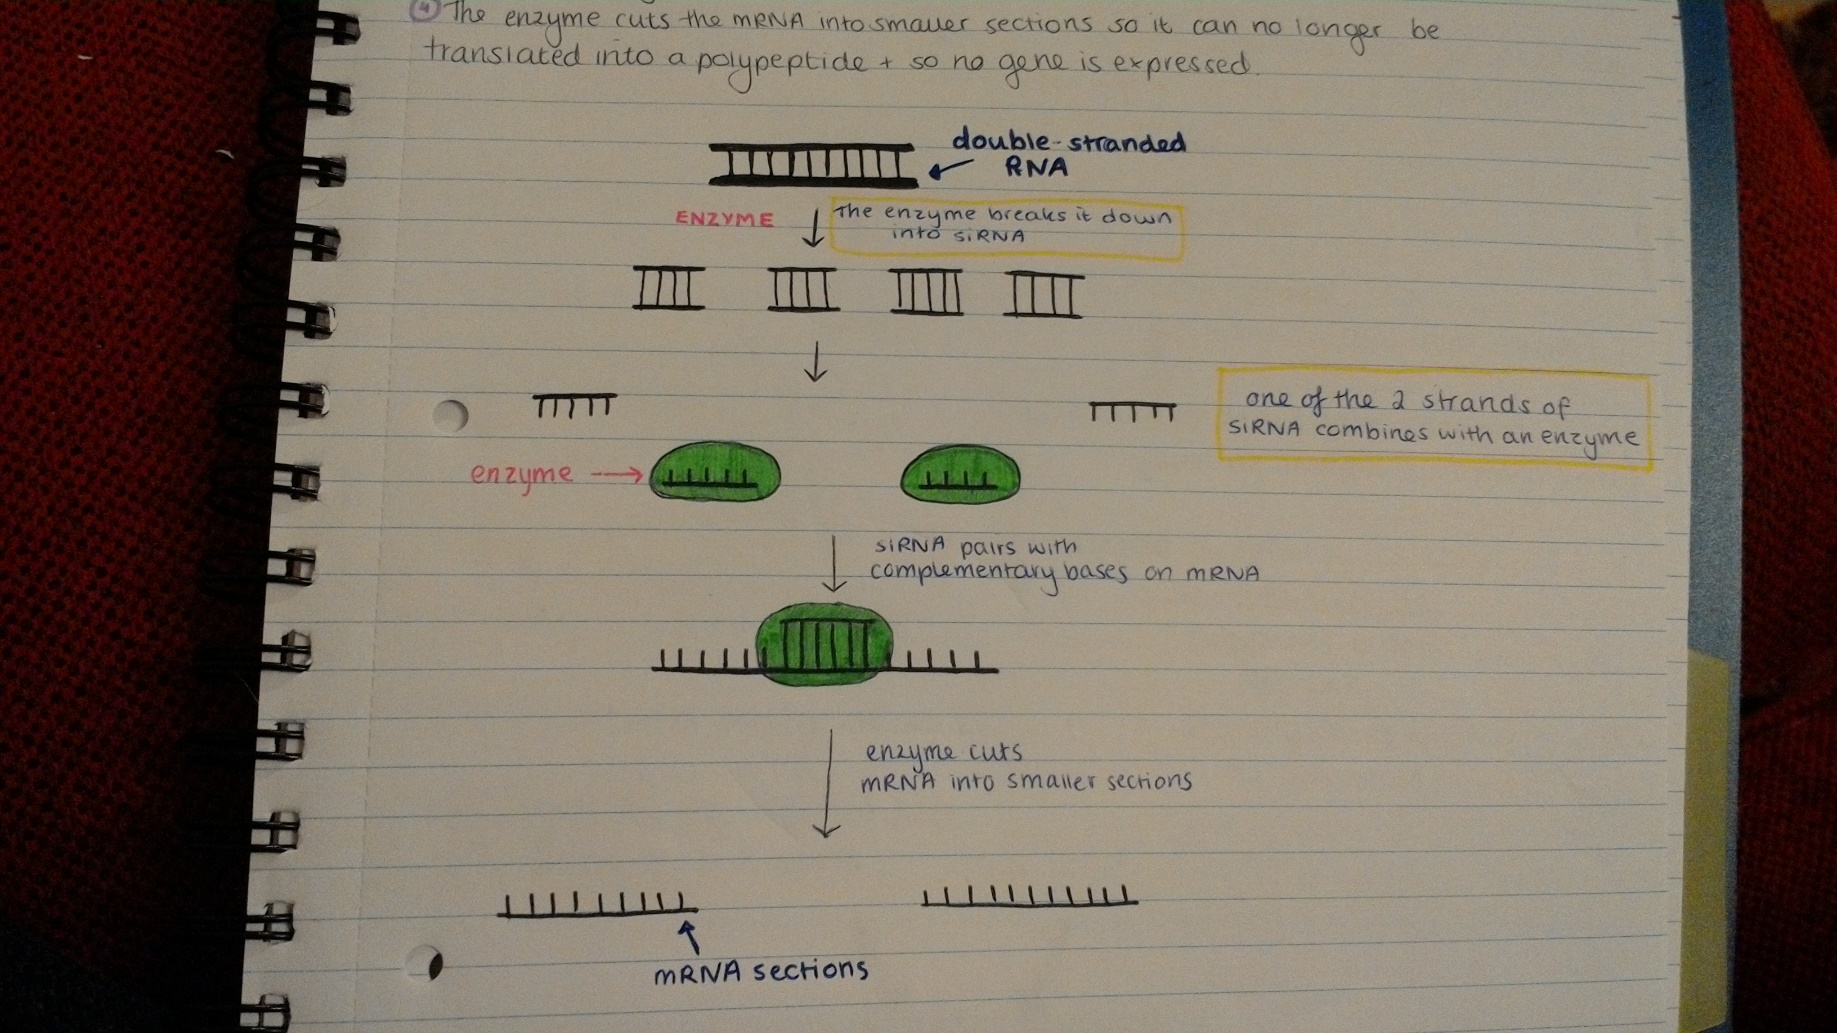 ④ The enzyme cuts the mRNA into smaller sections so it can no longer be
translated into a polypeptide + so no gene is expressed.
double-stranded
RNA
ENZYME
The enzyme breaks it down
into siRNA
one of the 2 strands of
siRNA combines with an enzyme
enzyme
siRNA pairs with
complementary bases on mRNA
enzyme cuts
mRNA into smaller sections
mRNA sections